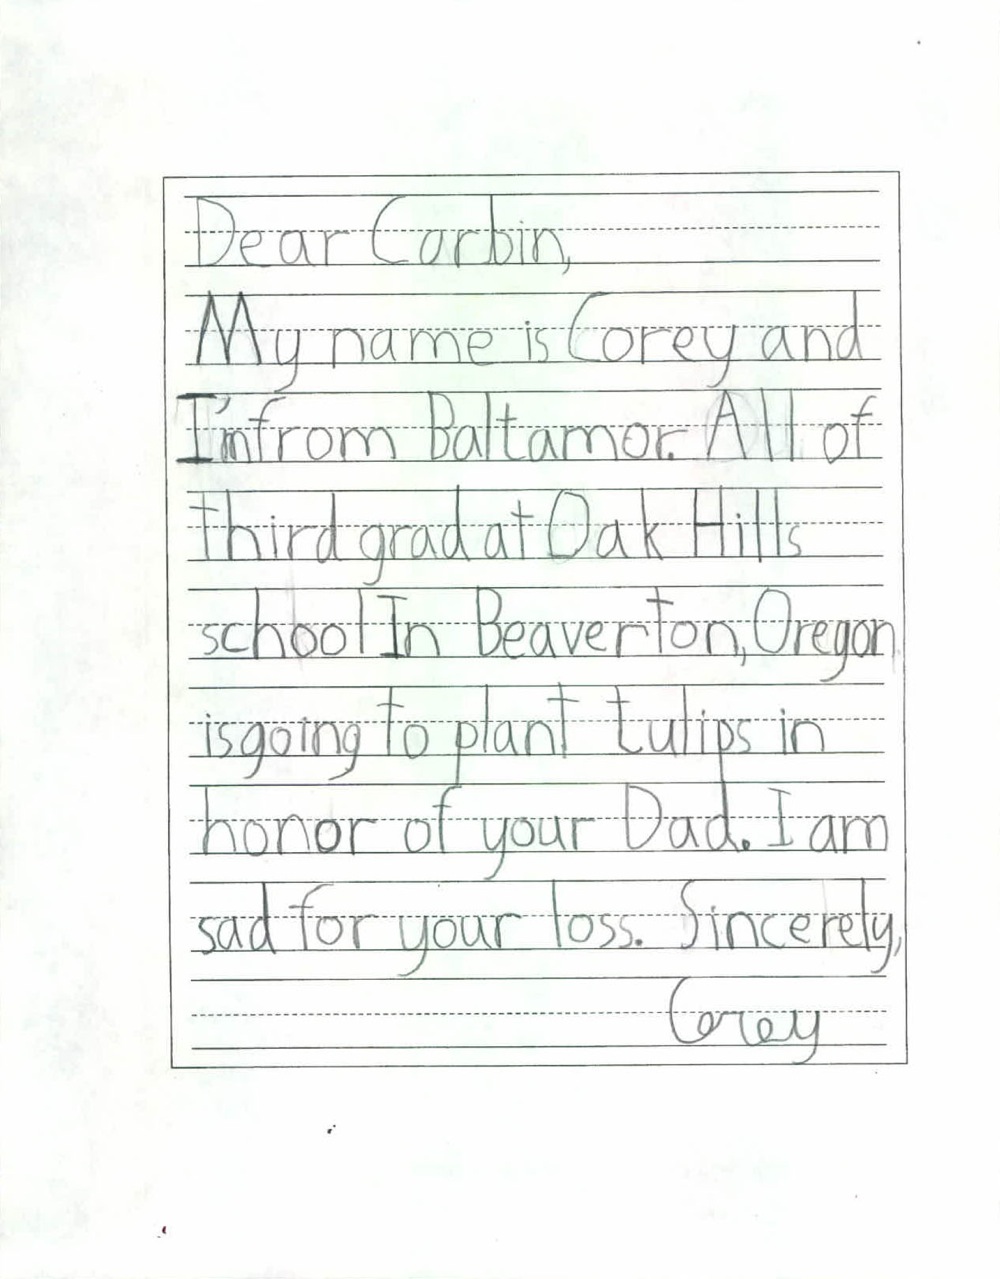 Dear Carbin,
My name is Corey and
I'm from Baltamor. All of
third grad at Oak Hills
school In Beaverton, Oregon
is going to plant tulips in
honor of your Dad. I am
sad for your loss. Sincerely,
Corey